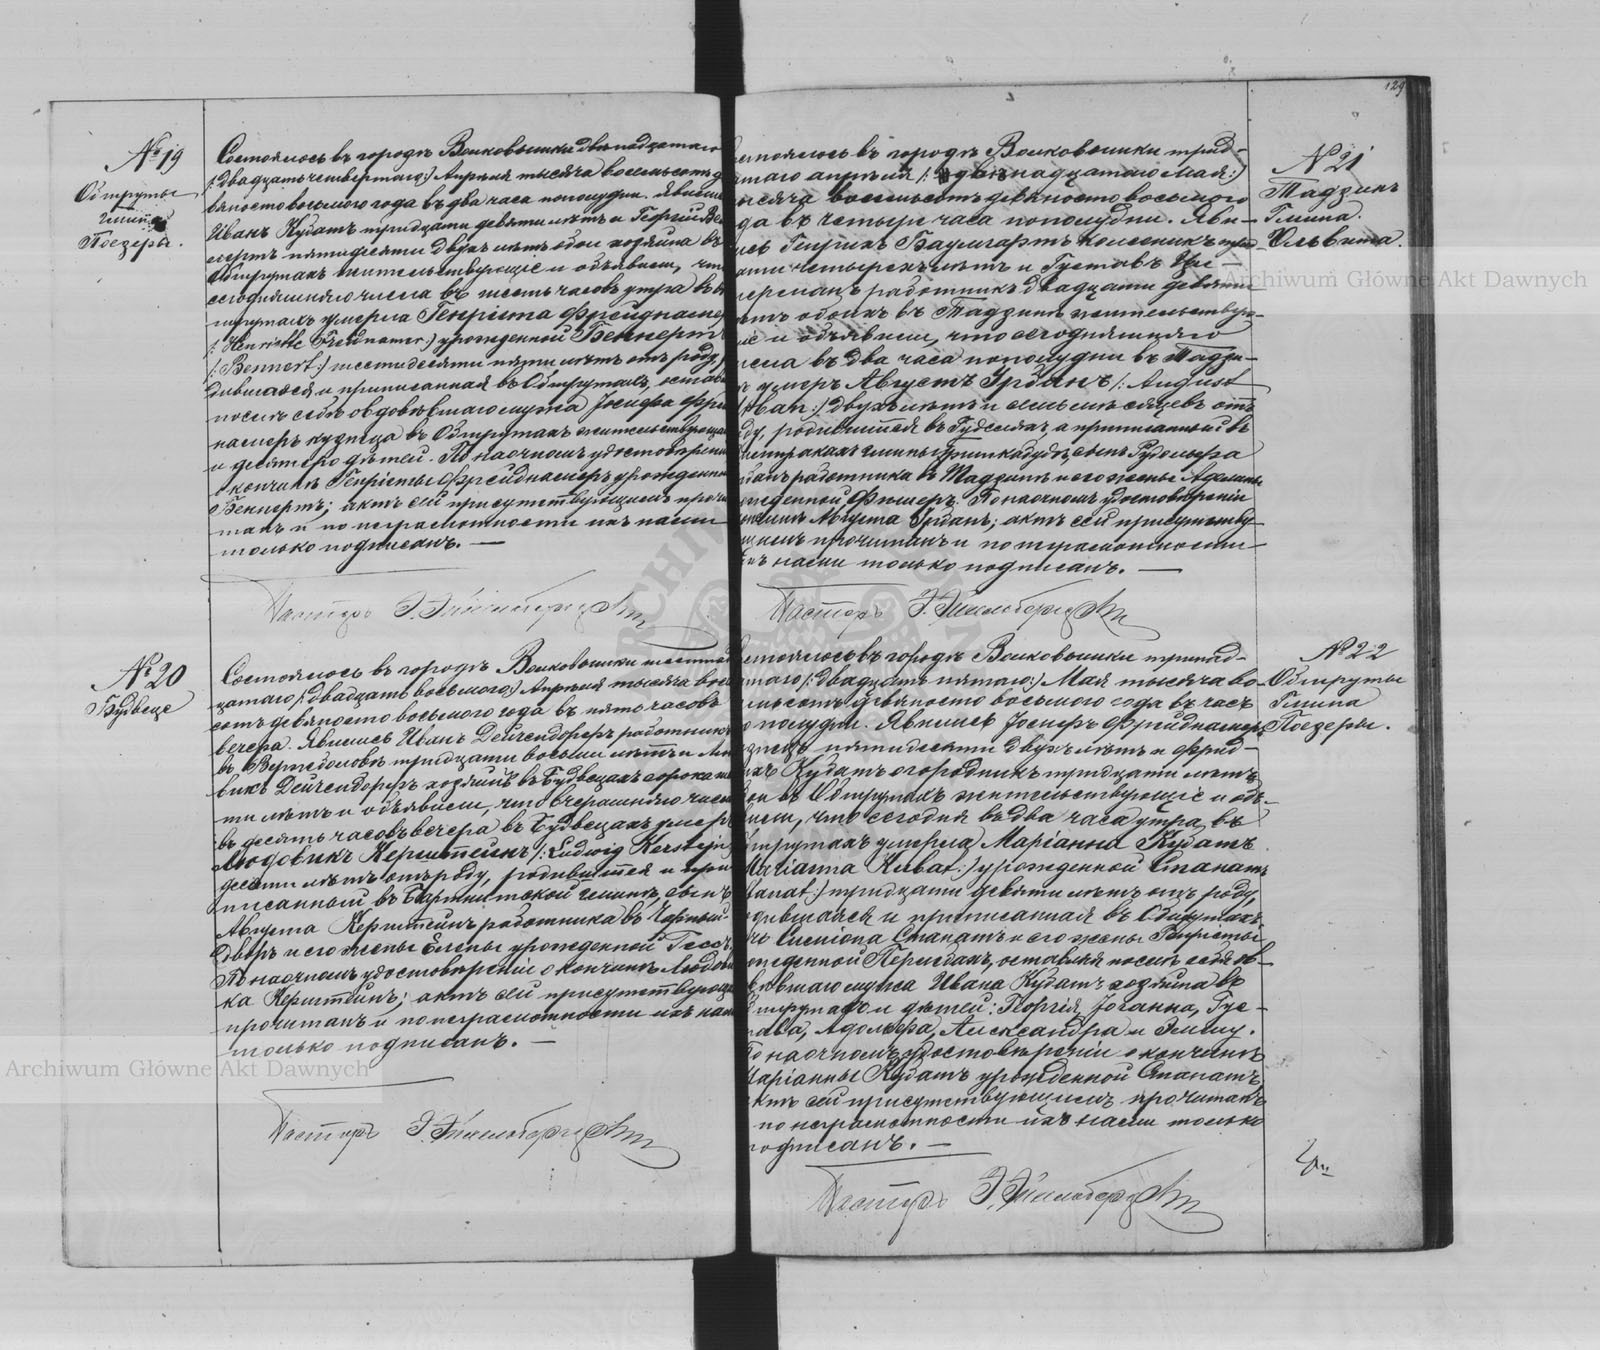 129
№ 19
Обшруты
гмина
Поезеры.
Состоялось въ городѣ Волковышки двѣнадцатаго
/: двадцать четвертаго :/ Апрѣля тысяча восемьсотъ д
вяносто восьмого года въ два часа пополудни. Явились
Иванъ Кудатъ тридцати девяти лѣтъ и Георгій
пятидесяти двухъ лѣтъ обои хозяина въ
Обшрутахъ жительствующіе и объявили, что
сегодняшняго числа въ шесть часовъ утра въ Об
шрутахъ умерла Генріета Фрейднамеръ
/: Henriette Freidnamer :/ урожденной Беннертъ
/: Bennert :/ шестидесяти пяти лѣтъ отъ роду,
дившаяся и приписанная въ Обшрутахъ, остав
послѣ себя овдовѣвшаго мужа Іосифа Фрей
намеръ кузнеца въ Обшрутахъ жительствующаго
и десятеро дѣтей. По наочномъ удостовѣреніи
о кончинѣ Генріеты Фрейднамеръ урожденной
Беннертъ; актъ сей присутствующимъ прочи
танъ и по неграмотности ихъ нами
только подписанъ. —
Пасторъ
№ 20
Будвеце
Состоялось въ городѣ Волковышки шестнад
цатаго /: двадцать восьмого :/ Апрѣля тысяча восемь
сотъ девяносто восьмого года въ пять часовъ
вечера. Явились Иванъ Дейчендорфъ работникъ
въ тридцати восьми лѣтъ и Людо
викъ Дейчендорфъ хозяинъ въ Будвецахъ сорока
ти лѣтъ и объявили, что вчерашняго числа
въ десять часовъ вечера въ Будвецахъ умеръ
Людовикъ Керштейнъ /: Ludwig Kerstein :/
десяти лѣтъ отъ роду, родившійся и при
писанный въ гминѣ, сынъ
Августа Керштейнъ работника въ Чорный
дворъ и его жены Елены урожденной Гессъ.
По наочномъ удостовѣреніи о кончинѣ Людови
ка Керштейнъ; актъ сей присутствующимъ
прочитанъ и по неграмотности ихъ нами
только подписанъ. —
Пасторъ
№ 21
Тадзинъ
Гмина.
Ольвита.
стоялось въ городѣ Волковышки трид-
цатаго апрѣля /: двѣнадцатаго Мая :/
тысяча восемьсотъ девяносто восьмого
да въ четыре часа пополудни. Яви-
лись Генрихъ Баумгартъ колесникъ трид
цати четырехъ лѣтъ и Густавъ Ци-
мерманъ работникъ двадцати девяти
лѣтъ обоихъ въ Тадзинѣ жительствую-
іе и объявили, что сегодняшняго
числа въ два часа пополудни въ Тадзи-
умеръ Августъ Урбанъ /: August
Urban :/ двухъ лѣтъ и семь мѣсяцевъ отъ
ду, родившійся въ а приписанный въ
гмины сынъ Рудольфа
банъ работника въ Тадзинѣ и его жены
урожденной Фишеръ. По наочномъ удостовѣреніи
кончинѣ Августа Урбанъ; актъ сей присутству-
щимъ прочитанъ и по неграмотности
ихъ нами только подписанъ. —
Пасторъ
№ 22
Обшруты
Гмина
Поезеры.
стоялось въ городѣ Волковышки тринад-
цатаго /: двадцать пятаго :/ Мая тысяча во-
семьсотъ девяносто восьмого года въ часъ
пополудни. Явились Іосифъ Фрейднамеръ
кузнецъ пятидесяти двухъ лѣтъ и Фрид-
рихъ Кудатъ огородникъ тридцати лѣтъ
обои въ Обшрутахъ жительствующіе и объ-
явили, что сегодня въ два часа утра въ
Обшрутахъ умерла Маріанна Кудатъ
Marianna Kudat :/ урожденной Станатъ
Stanat :/ тридцати девяти лѣтъ отъ роду,
родившаяся и приписанная въ Обшрутахъ
Станатъ и его жены Генріеты
урожденной оставляя послѣ себя ов-
довѣвшаго мужа Ивана Кудатъ хозяина въ
Обшрутахъ и дѣтей: Георгія, Іоганна, Гус-
тава, Адольфа, Александра и Эмму.
По наочномъ удостовѣреніи о кончинѣ
Маріанны Кудатъ урожденной Станатъ,
актъ сей присутствующимъ прочитанъ
по неграмотности ихъ нами только
подписанъ. —
Пасторъ
Archiwum Główne Akt Dawnych
Archiwum Główne Akt Dawnych